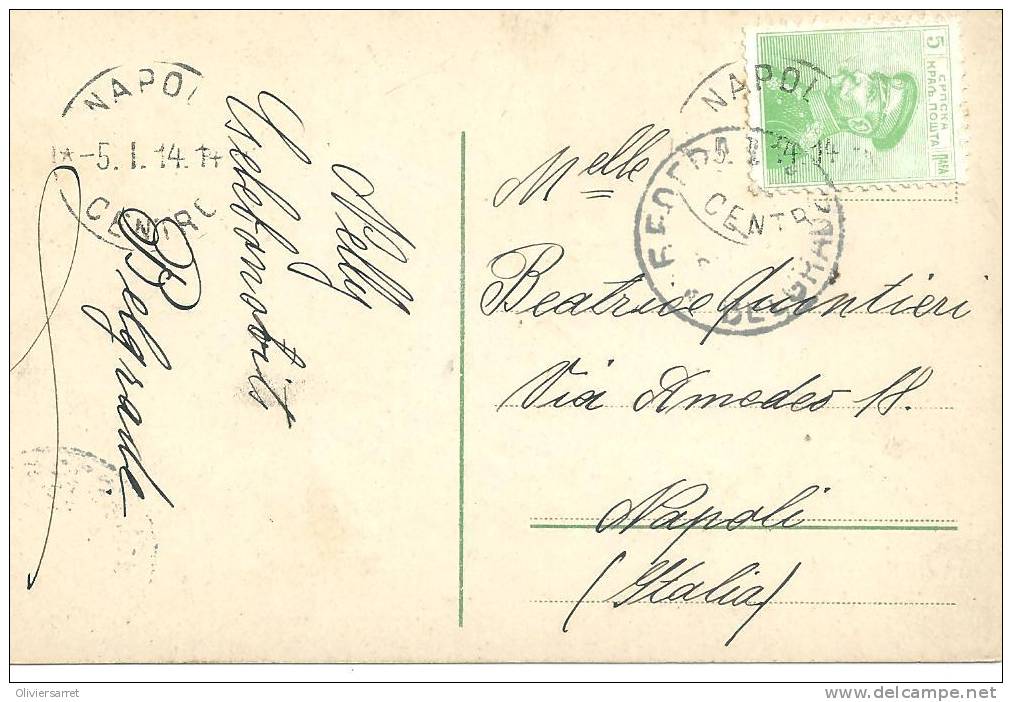 NAPOL
*-5.1.14.14
CENTRO
Nelly
Belgrade
5
СРПСКА
КРАЉ. ПОШТА
ПАРА
NAPOL
5.1.14.14
CENTRO
БЕОГРАД
BELGRADE
Melle
Beatrice Quintieri
Via Amedeo 18.
Napoli
(Italia)
Oliviersarret
www.delcampe.net